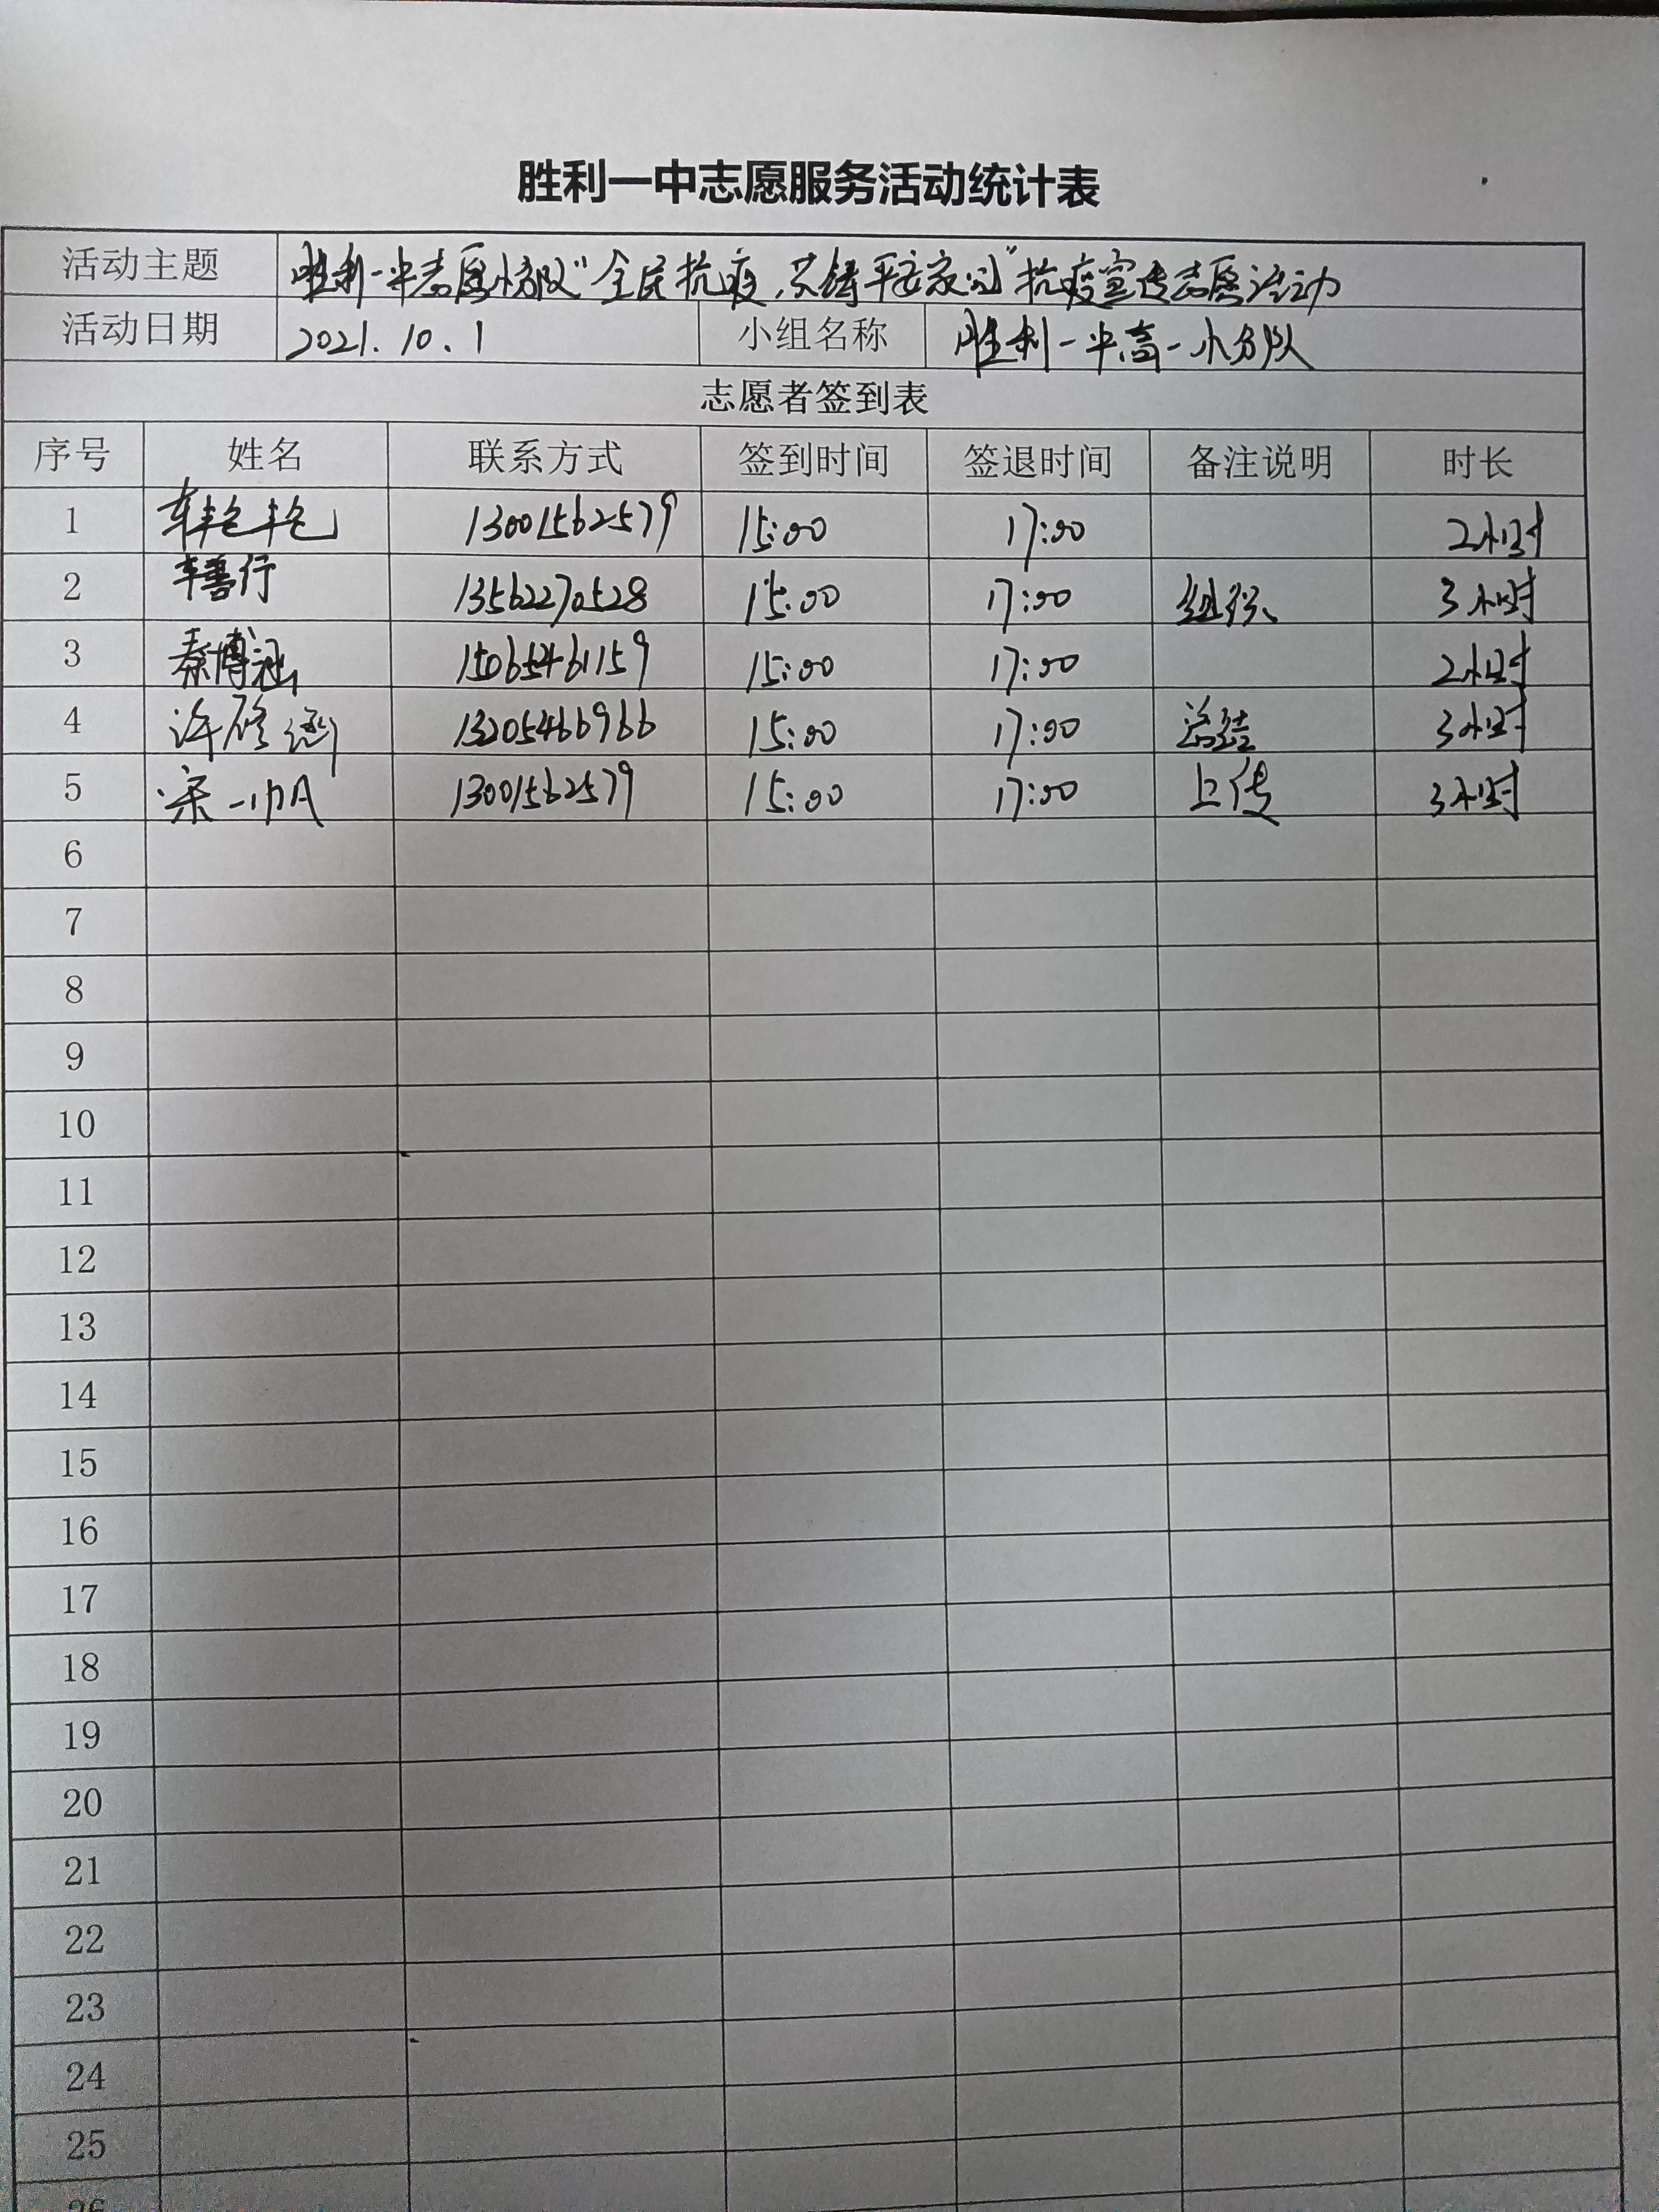 胜利一中志愿服务活动统计表
活动主题 胜利一中志愿小分队“全民抗疫,共铸平安家园”抗疫宣传志愿活动
活动日期 2021.10.1 小组名称 胜利一中高一小分队
志愿者签到表
序号 姓名 联系方式 签到时间 签退时间 备注说明 时长
1 13001562579 15:00 17:00 2小时
2 车善行 13562270528 15:00 17:00 组织 3小时
3 秦博涵 15065461159 15:00 17:00 2小时
4 许 13205466966 15:00 17:00 总结 3小时
5 宋一帆 13001562579 15:00 17:00 上传 3小时
6
7
8
9
10
11
12
13
14
15
16
17
18
19
20
21
22
23
24
25
26